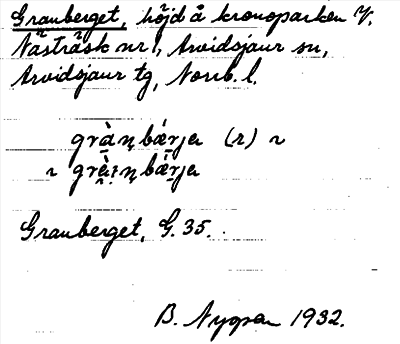 Granberget, höjd å kronoparken V.
Västräsk nr 1, Arvidsjaur sn,
Arvidsjaur tg, Norrb. l.
grànbǽrja (r) ~
~ grèinbǽrja
Granberget, G. 35.
B. Nyman 1932.